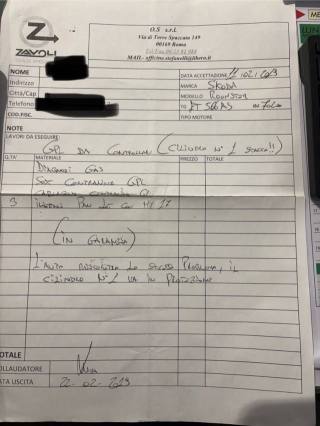 ZAVOLI
O.S s.r.l
Via di Torre Spaccata 149
00169 Roma
Tel/Fax 06 23 81 988
MAIL- officine.stefanelli@libero.it
NOME
Indirizzo
Città/Cap.
Telefono
COD.FISC.
DATA ACCETTAZIONE 11/02/2019
MARCA SKODA
MODELLO ROOMSTER
TG ET 566 AS
TIPO MOTORE
NOTE
LAVORI DA ESEGUIRE:
GPL DA CONTROLLARE (CILINDRO N° 1 STACCA!!)
Q.TA' MATERIALE PREZZO TOTALE
DIAGNOSI GAS
SOST CENTRALINA GPL
CENTRALINA GPL
3 INIETTORI PAN
(IN GARANZIA)
L'AUTO RISCONTRA LO STESSO PROBLEMA, IL
CILINDRO N°1 VA IN PROTEZIONE
TOTALE
COLLAUDATORE
DATA USCITA 22-02-2019